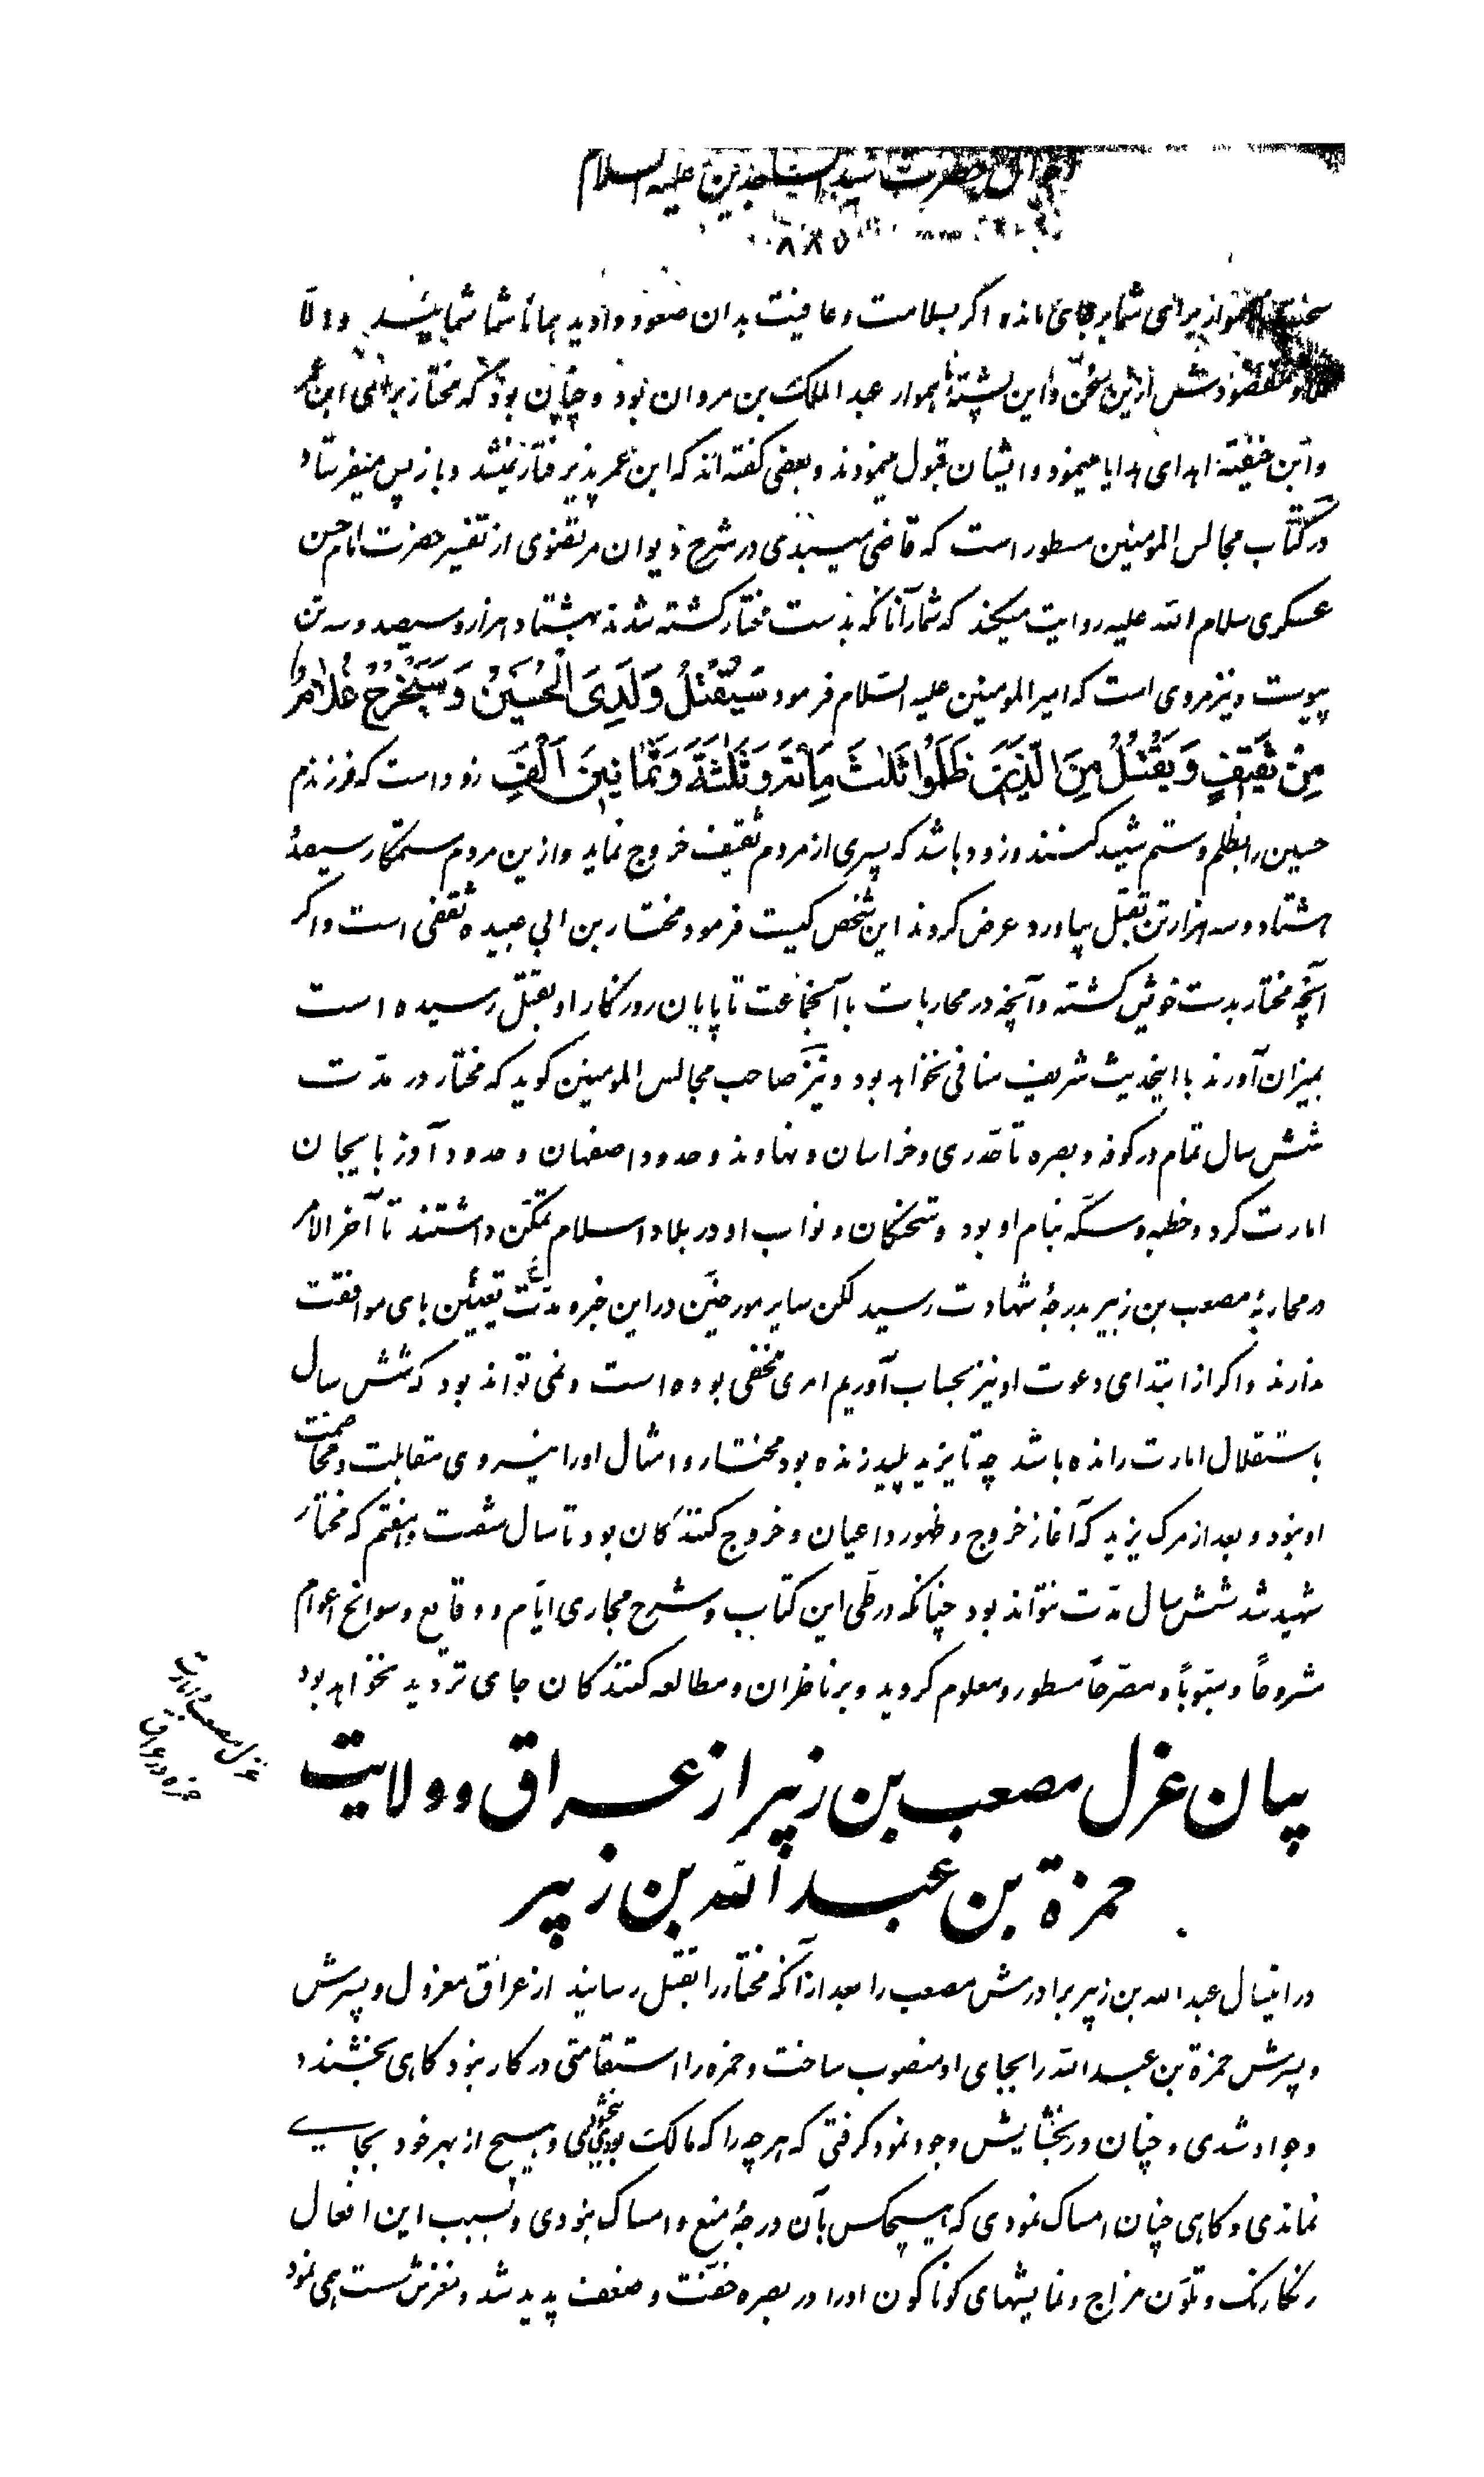 احوال حضرت سید الساجدین علیه السلام
۸۸۵
از برای شما بر جای مانده اگر بسلامت و عافیت بدان صعود دادید همانا شما شمائید و الا
مقصودش ازین سخن و این پشتهٔ هموار عبد الملک بن مروان بود و چنان بود که مختار برای ابن عمر
و ابن حنفیّه اهدای هدایا مینمود و ایشان قبول مینمودند و بعضی گفته‌اند که ابن عمر پذیرفتار نمیشد و باز پس میفرستاد
در کتاب مجالس المومنین مسطور است که قاضی میبدی در شرح دیوان مرتضوی از تفسیر حضرت امام حسن
عسکری سلام الله علیه روایت میکند که شمار آنانکه بدست مختار کشته شدند بهشتاد هزار و سیصد و سه تن
پیوست و نیز مروی است که امیر المومنین علیه السلام فرمود سَیُقْتَلُ وَلَدِیَ الْحُسَیْنُ وَسَیَخْرُجُ غُلَامٌ
مِنْ ثَقِیفٍ وَیَقْتُلُ مِنَ الَّذِینَ ظَلَمُوا ثَلٰثَ مِائَةٍ وَثَلٰثَةً وَثَمٰانِینَ اَلْفَ زود است که فرزندم
حسین را بظلم و ستم شهید کنند و زود باشد که پسری از مردم ثقیف خروج نماید و ازین مردم ستمکار سیصد
هشتاد و سه هزار تن بقتل بیاورد عرض کردند این شخص کیست فرمود مختار بن ابی عبیده ثقفی است و اگر
آنچه مختار بدست خویش کشته و آنچه در محاربات با آنجماعت تا پایان روزگار او بقتل رسیده است
بمیزان آورند با اینحدیث شریف منافی نخواهد بود و نیز صاحب مجالس المومنین گوید که مختار در مدّت
شش سال تمام در کوفه و بصره تا حدّ ری و خراسان و نهاوند و حدود اصفهان و حدود آذربایجان
امارت کرد و خطبه و سکّه بنام او بود و شحنکان و نواب او در بلاد اسلام تمکّن داشتند تا آخر الامر
در محاربهٔ مصعب بن زبیر بدرجهٔ شهادت رسید لکن سایر مورخین در این خبر و مدّت تعیین بای موافقت
ندارند و اگر از ابتدای دعوت او نیز بحساب آوریم امری مخفی بوده است و نمی تواند بود که شش سال
باستقلال امارت رانده باشد چه تا یزید پلید زنده بود مختار و امثال او را نیروی مقابلت و مخاصمت
او نبود و بعد از مرک یزید که آغاز خروج و ظهور داعیان و خروج کنندکان بود تا سال شصت و هفتم که مختار
شهید شد شش سال مدّت نتواند بود چنانکه در طی این کتاب و شرح مجاری ایّام و وقایع و سوانح اعوام
مشروحاً و مبوّباً و مصرّحاً مسطور و معلوم کردید و بر ناظران و مطالعه کنندکان جای تردید نخواهد بود
عزل مصعب و امارت
حمزه در عراق
بیان عزل مصعب بن زبیر از عراق و ولایت
حمزة بن عبد الله بن زبیر
در اینسال عبد الله بن زبیر برادرش مصعب را بعد از آنکه مختار را بقتل رسانید از عراق معزول و پسرش
و پسرش حمزة بن عبد الله را بجای او منصوب ساخت و حمزه را استقامتی در کار نبود کاهی بخشنده
و جواد شدی و چنان در بخشایش وجود نمود کرفتی که هر چه را که مالک بودی بخشیدی و هیچ از بهر خود بجای
نماندی و کاهی چنان امساک نمودی که هیچکس بآن درجهٔ منع و امساک نبودی و بسبب این افعال
رنکارنک و تلوّن مزاج و نمایشهای کوناکون او را در بصره خفّت و ضعف پدید شد و مغزش سست همی نمود